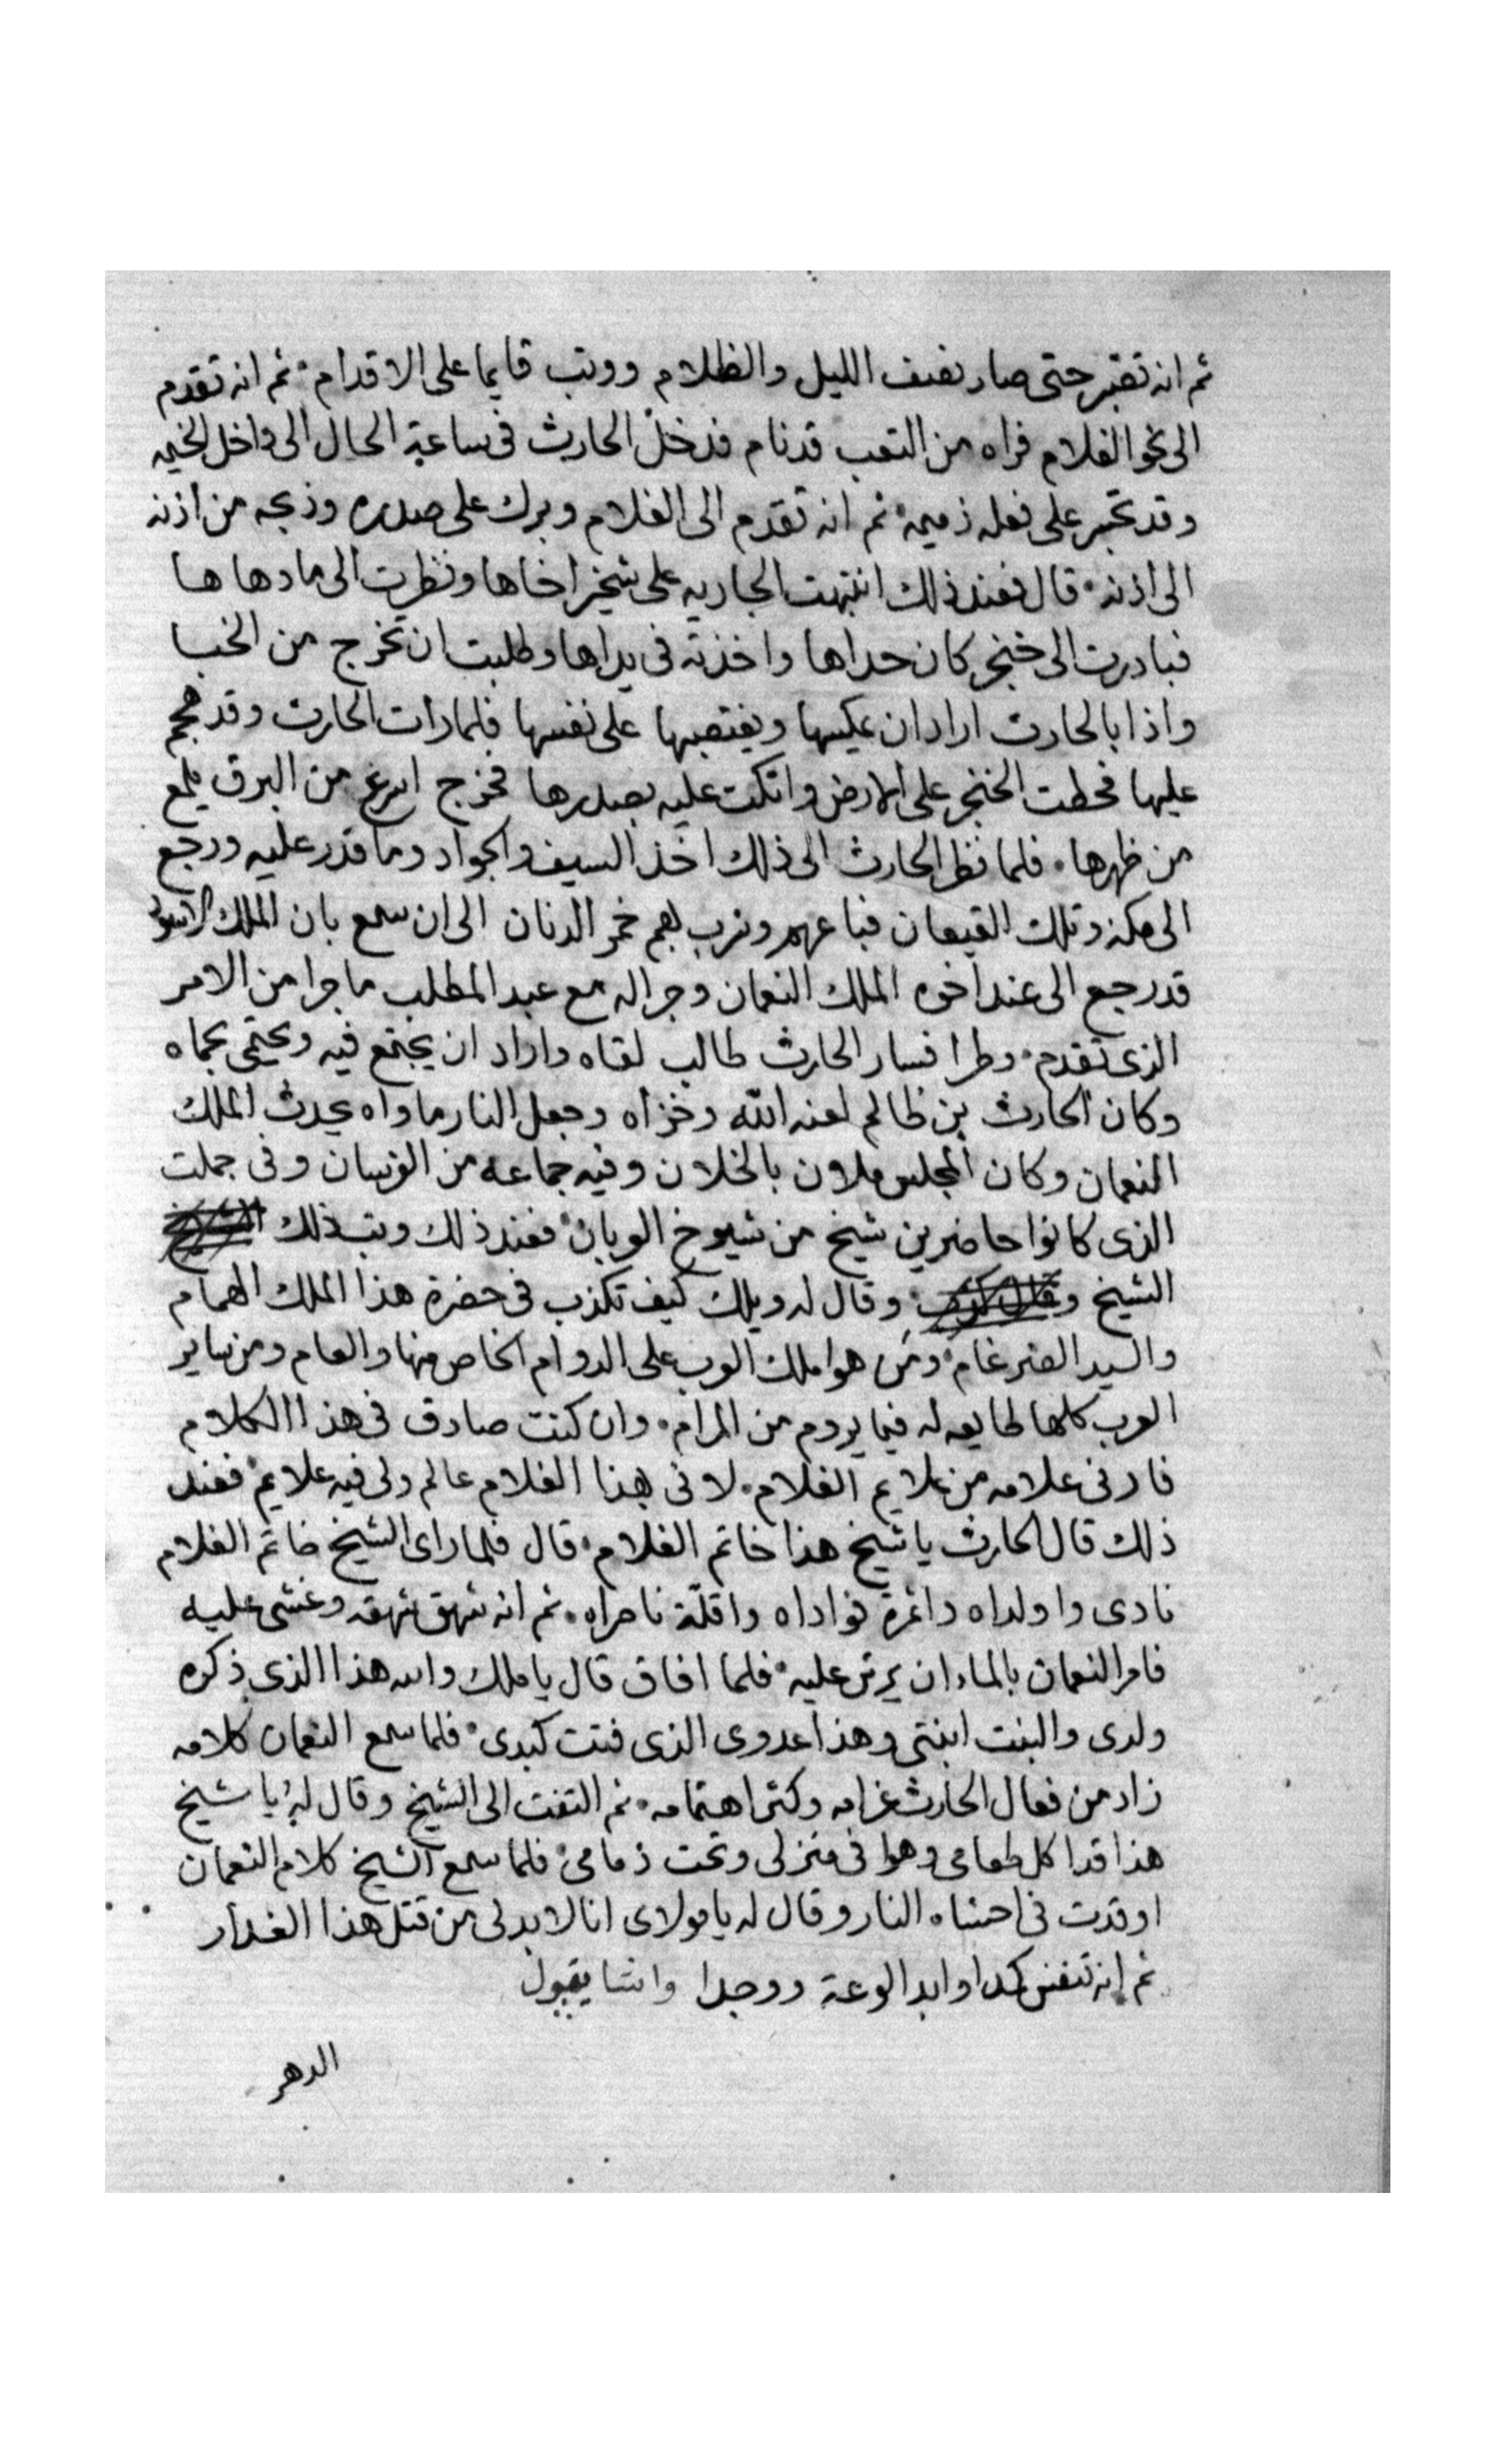 ثم انه تقبر حتى صار نصف الليل والظلام ووثب قايما على الاقدام ثم انه تقدم
الى نحو الغلام فراه من التعب قد نام فدخل الحارث فى ساعة الحال الى داخل الخيمه
وقد تجبر على فعله ذميمه ثم انه تقدم الى الغلام وبرك على صدره وذبحه من اذنه
الى اذنه قال فعند ذلك انتبهت الجاريه على شخير اخاها ونظرت الى ما دهاها
فبادرت الى خنجر كان حداها واخذته فى يداها وطلبت ان تخرج من الخبا
واذا بالحارث اراد ان يمكيها ويغتصبها على نفسها فلما رات الحارث وقد هجم
عليها فحطت الخنجر على الارض واتكت عليه بصدرها فخرج اسرع من البرق يلمع
من ظهرها فلما نظر الحارث الى ذلك اخذ السيف والجواد وما قدر عليه ورجع
الى مكه وتلك القيعان فباعهم وشرب بهم خمر الدنان الى ان سمع بان الملك الاسود
قد رجع الى عند اخوه الملك النعمان وجرا له مع عبد المطلب ما جرا من الامر
الذى تقدم وطرا فسار الحارث طالب لقاه واراد ان يجتمع فيه ويحتمى بحماه
وكان الحارث بن ظالم لعنه الله وخزاه وجعل النار ماواه يحدث الملك
النعمان وكان المجلس ملان بالخلان وفيه جماعه من الفرسان وفى جملت
الذى كانوا حاضرين شيخ من شيوخ العربان فعند ذلك وثب ذلك
الشيخ وقال له ويلك كيف تكذب فى حضرة هذا الملك الهمام
والسيد الضرغام ومن هوا ملك العرب على الدوام الخاص منها والعام ومن ساير
العرب كلها طايعه له فيما يروم من المرام وان كنت صادق فى هذا الكلام
فارنى علامه من علايم الغلام لانى بهذا الغلام عالم ولى فيه علايم فعند
ذلك قال الحارث يا شيخ هذا خاتم الغلام قال فلما راى الشيخ خاتم الغلام
نادى وا ولداه واثمرة فواداه واقلة ناصراه ثم انه شهق شهقه وغشى عليه
فامر النعمان بالماء ان يرش عليه فلما افاق قال يا ملك والله هذا الذى ذكره
ولدى والبنت ابنتى وهذا عدوى الذى فتت كبدى فلما سمع النعمان كلامه
زاد من فعال الحارث غرامه وكثر اهتمامه ثم التفت الى الشيخ وقال له يا شيخ
هذا قد اكل طعامى وهوا فى منزلى وتحت ذمامى فلما سمع الشيخ كلام النعمان
اوقدت فى احشاه النار وقال له يا مولاى انا لا بد لى من قتل هذا الغدار
ثم انه تنفس كمدا وابد الوعة ووجدا وانشا يقول
الدهر